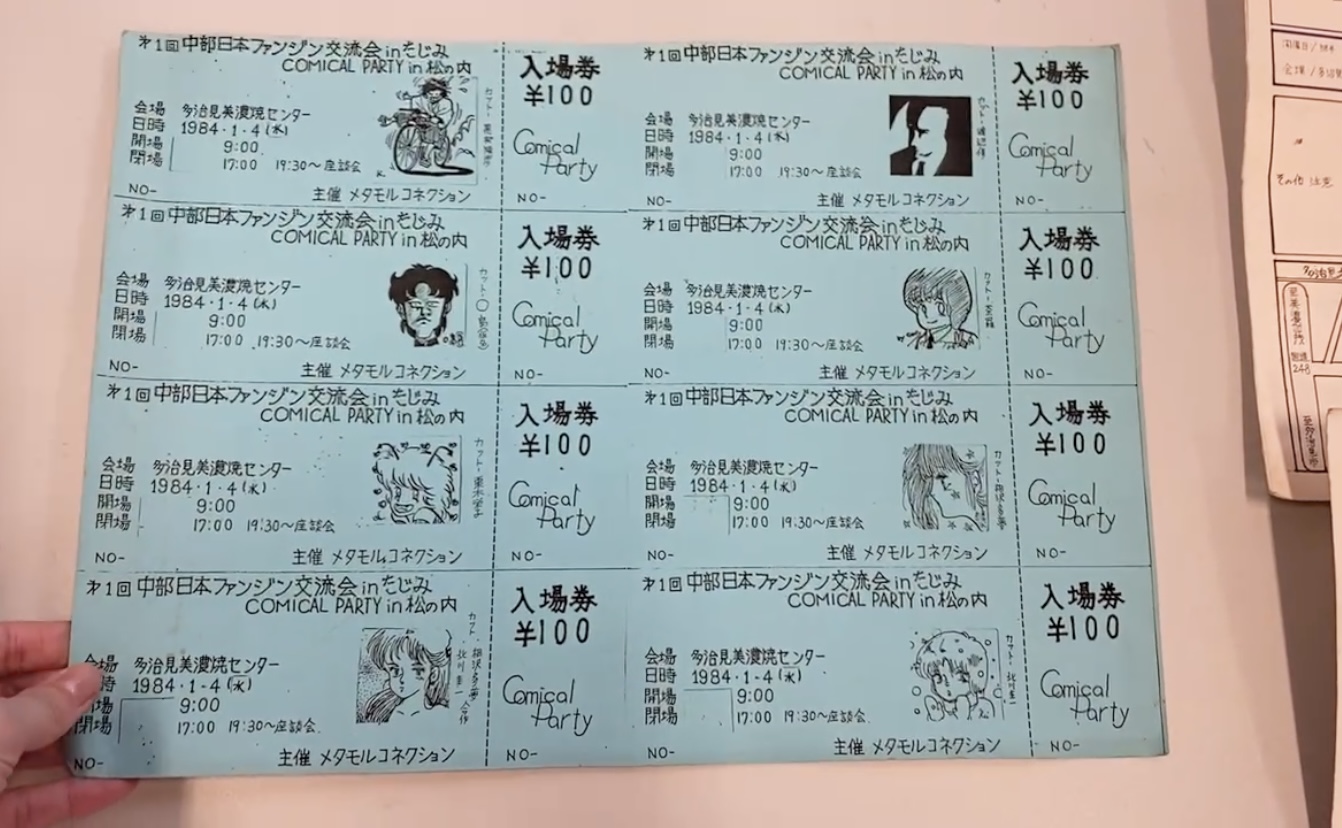 第1回中部日本ファンジン交流会inたじみ
COMICAL PARTY in 松の内
会場 多治見美濃焼センター
日時 1984・1・4(水)
開場 9:00
閉場 17:00 19:30〜座談会
NO-
主催 メタモルコネクション
入場券
¥100
Comical
Party
NO-
第1回中部日本ファンジン交流会inたじみ
COMICAL PARTY in 松の内
会場 多治見美濃焼センター
日時 1984・1・4(水)
開場 9:00
閉場 17:00 19:30〜座談会
NO-
主催 メタモルコネクション
入場券
¥100
Comical
Party
NO-
第1回中部日本ファンジン交流会inたじみ
COMICAL PARTY in 松の内
会場 多治見美濃焼センター
日時 1984・1・4(水)
開場 9:00
閉場 17:00 19:30〜座談会
NO-
主催 メタモルコネクション
カット・
入場券
¥100
Comical
Party
NO-
第1回中部日本ファンジン交流会inたじみ
COMICAL PARTY in 松の内
会場 多治見美濃焼センター
日時 1984・1・4(水)
開場 9:00
閉場 17:00 19:30〜座談会
NO-
主催 メタモルコネクション
カット・
入場券
¥100
Comical
Party
NO-
第1回中部日本ファンジン交流会inたじみ
COMICAL PARTY in 松の内
会場 多治見美濃焼センター
日時 1984・1・4(水)
開場 9:00
閉場 17:00 19:30〜座談会
NO-
主催 メタモルコネクション
カット・
入場券
¥100
Comical
Party
NO-
第1回中部日本ファンジン交流会inたじみ
COMICAL PARTY in 松の内
会場 多治見美濃焼センター
日時 1984・1・4(水)
開場 9:00
閉場 17:00 19:30〜座談会
NO-
主催 メタモルコネクション
カット・
入場券
¥100
Comical
Party
NO-
第1回中部日本ファンジン交流会inたじみ
COMICAL PARTY in 松の内
会場 多治見美濃焼センター
時 1984・1・4(水)
場 9:00
閉場 17:00 19:30〜座談会
NO-
主催 メタモルコネクション
カット・
北川圭一 合作
入場券
¥100
Comical
Party
NO-
第1回中部日本ファンジン交流会inたじみ
COMICAL PARTY in 松の内
会場 多治見美濃焼センター
日時 1984・1・4(水)
開場 9:00
閉場 17:00 19:30〜座談会
NO-
主催 メタモルコネクション
カット・北川圭一
入場券
¥100
Comical
Party
NO-
その他 注意
248